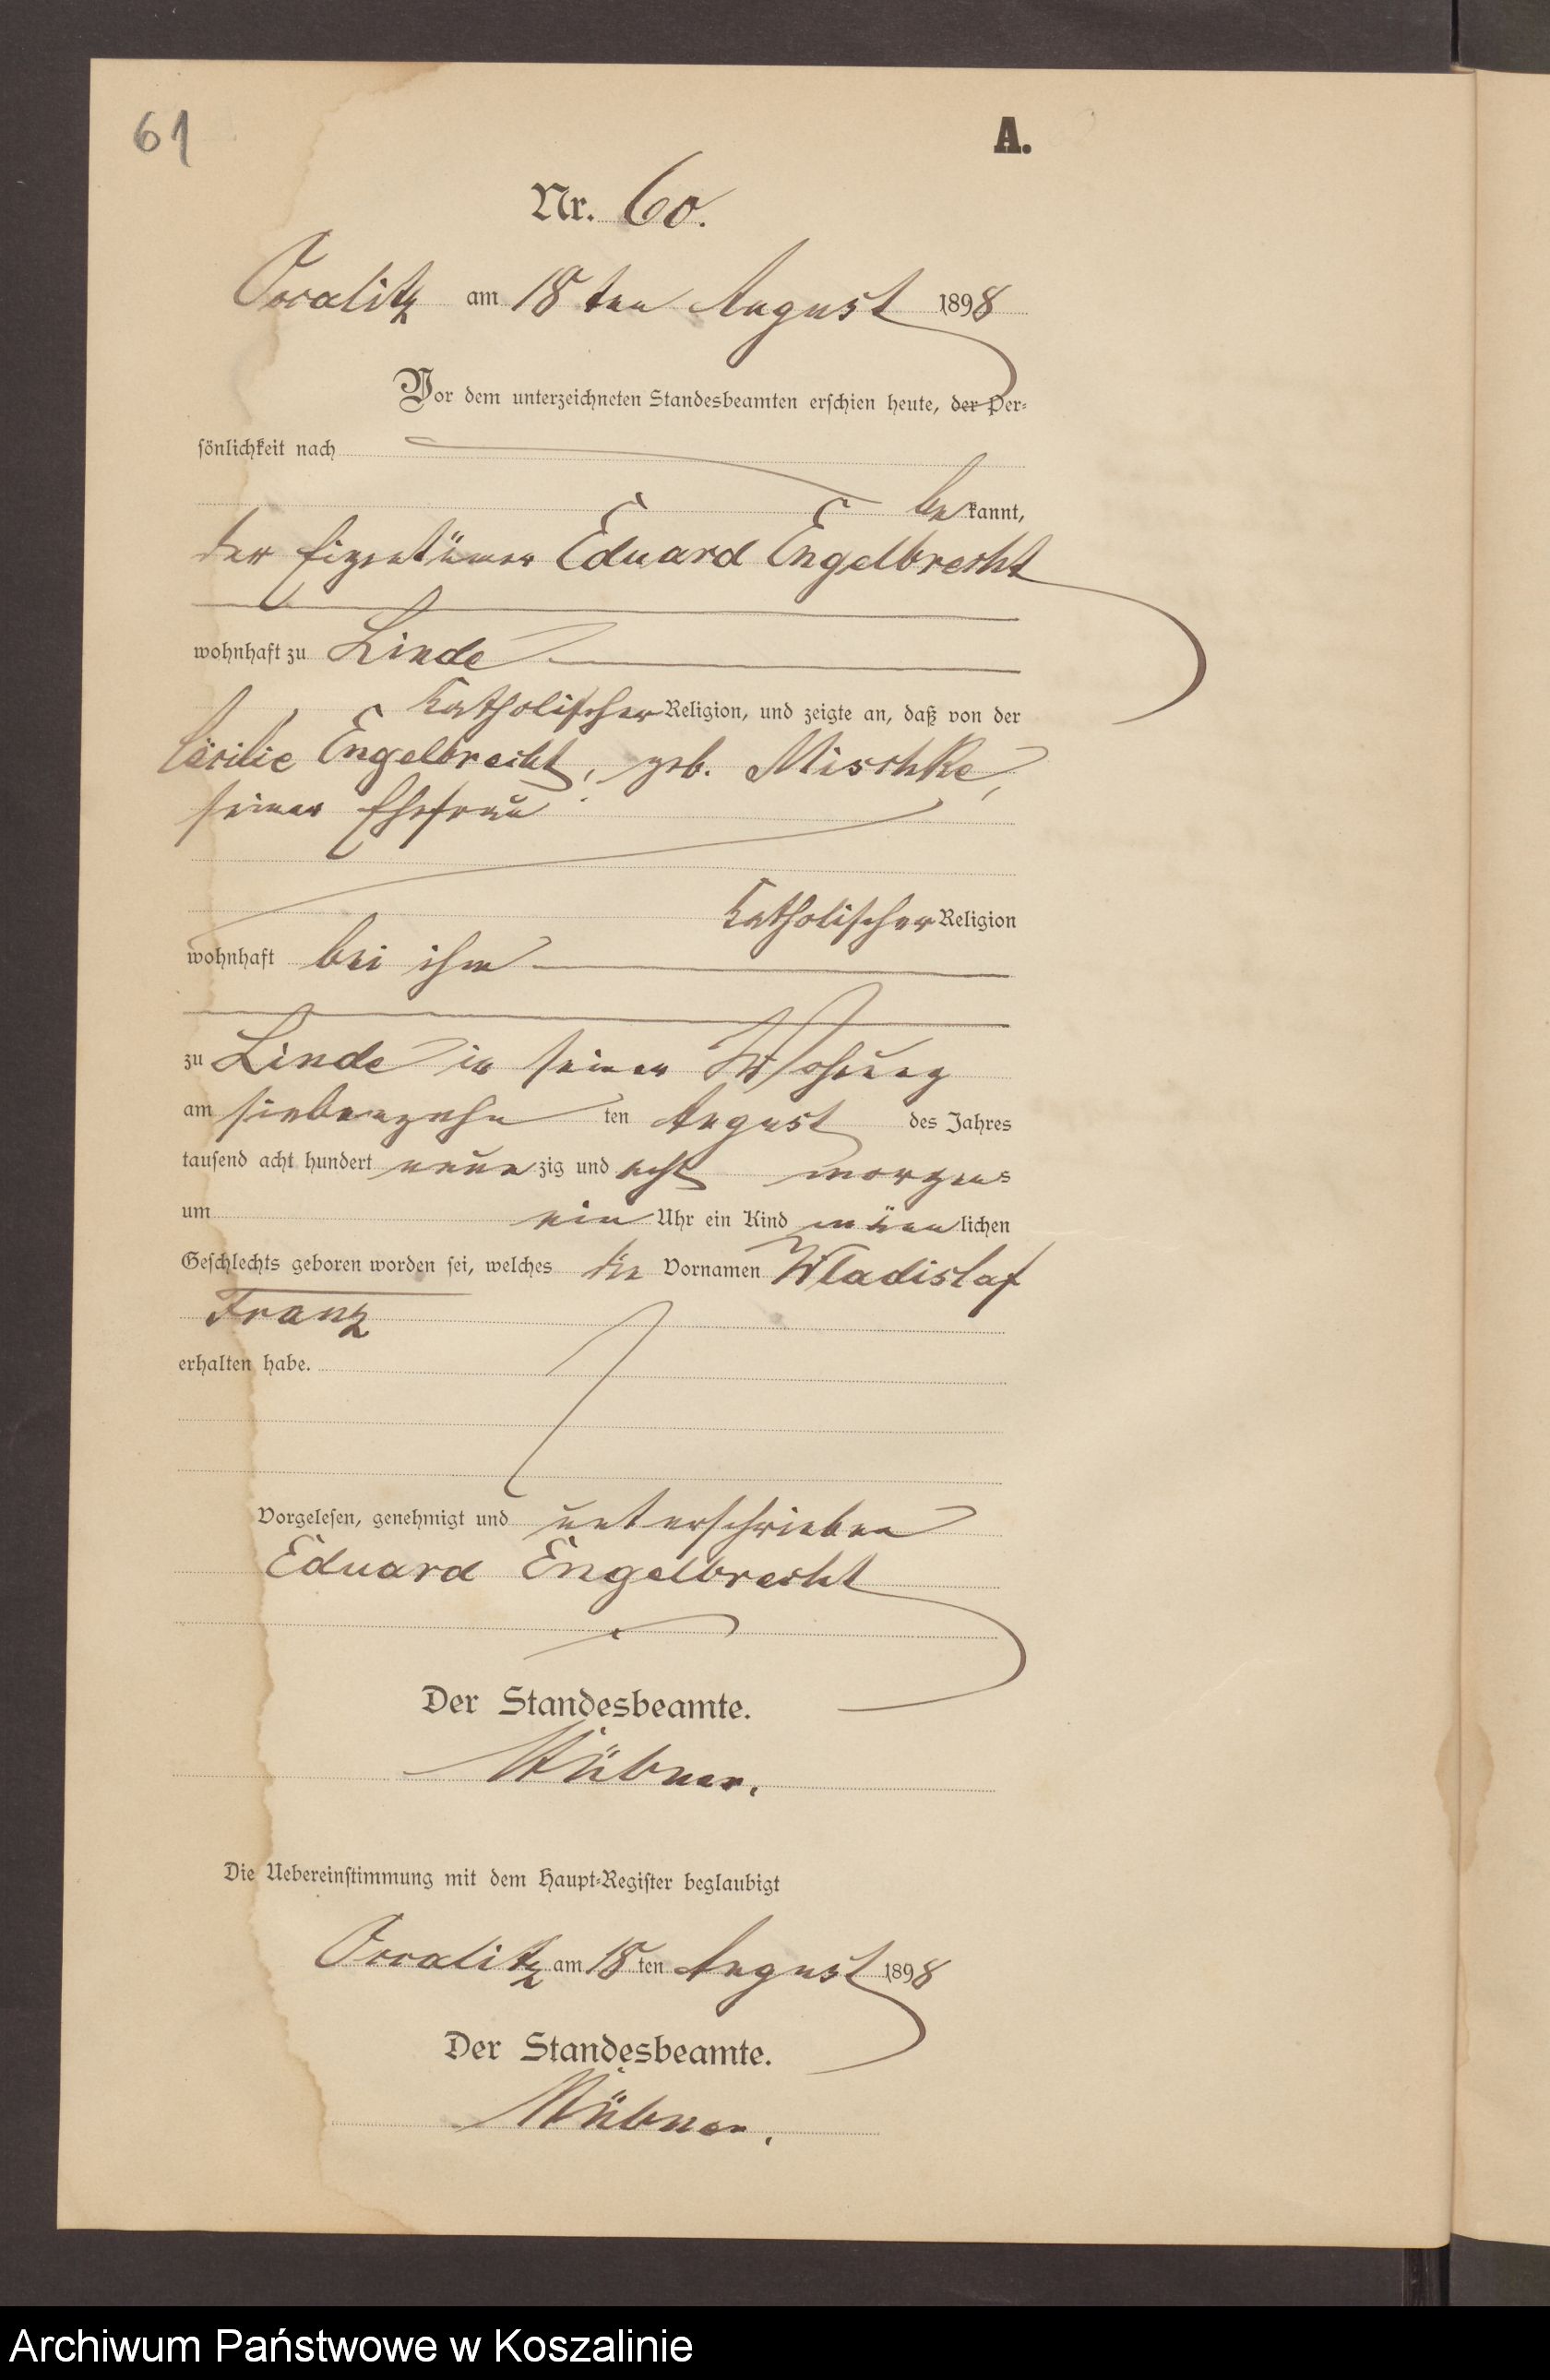 61
A.
Nr. 60.
am 18ten August 1898
Vor dem unterzeichneten Standesbeamten erschien heute, der Per-
sönlichkeit nach
bekannt,
der Eigentümer Eduard Engelbrecht
wohnhaft zu Linde
katholischer Religion, und zeigte an, daß von der
Cäcilie Engelbrecht, geb. Mischke,
seiner Ehefrau
katholischer Religion
wohnhaft bei ihm
zu Linde in seiner Wohnung
am siebenzehn ten August des Jahres
tausend acht hundert neunzig und acht morgens
um ein Uhr ein Kind männlichen
Geschlechts geboren worden sei, welches die Vornamen Wladislaf
Franz
erhalten habe.
Vorgelesen, genehmigt und unterschrieben
Eduard Engelbrecht
Der Standesbeamte.
Die Uebereinstimmung mit dem Haupt-Register beglaubigt
am 18ten August 1898
Der Standesbeamte.
Archiwum Państwowe w Koszalinie